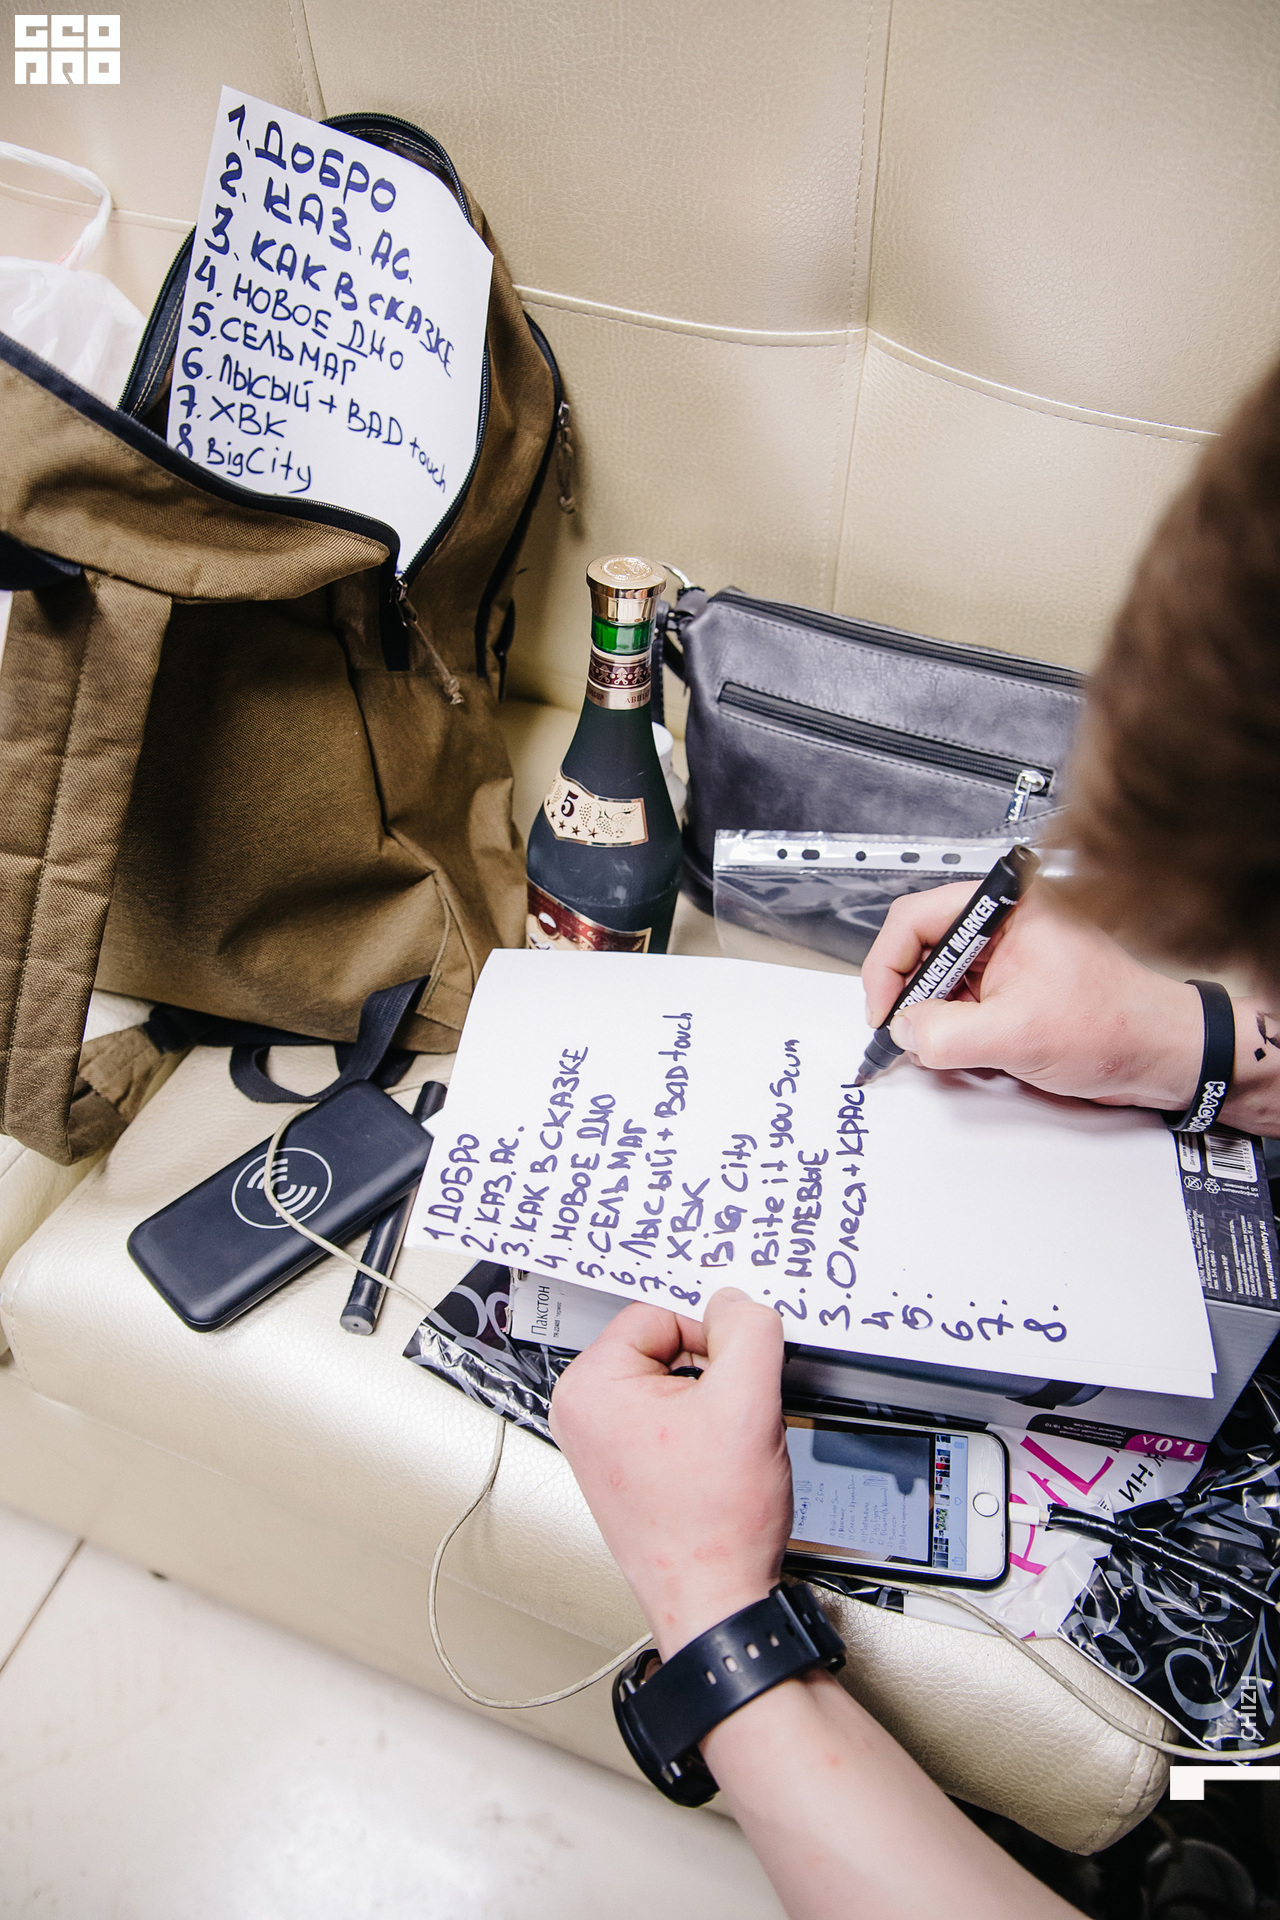 GEO
PRO
1. ДОБРО
2. КАЗ. АС.
3. КАК В СКАЗКЕ
4. НОВОЕ ДНО
5. СЕЛЬМАГ
6. ЛЫСЫЙ + BAD touch
7. ХВК
8 BigCity
5
PERMANENT MARKER
centropen
1 ДОБРО
2. КАЗ. АС.
3. КАК В СКАЗКЕ
4. НОВОЕ ДНО
5. СЕЛЬМАГ
6. ЛЫСЫЙ + BAD touch
7. ХВК
8. BiG City
1. Bite it you Scum
2. НУЛЕВЫЕ
3. Олеся + КРАС
4.
5.
6.
7.
8.
Пакстон
www.smartdelivery.su
1.0л
CHIZH